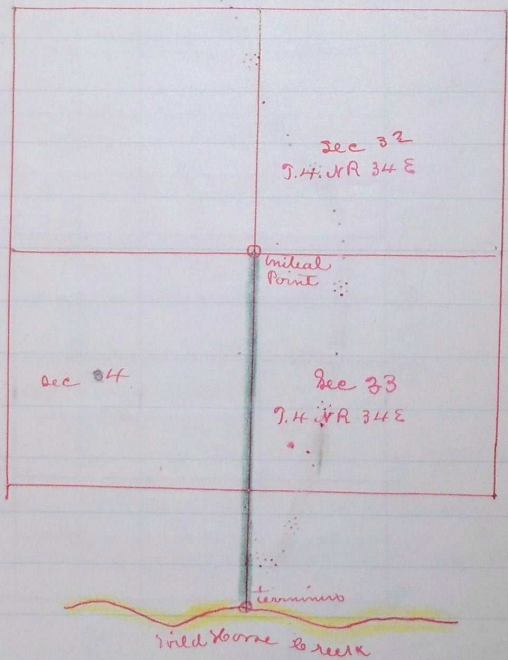 Sec 32
T.4.NR 34 E
Initial
Point
Sec 4
Sec 33
T.4.NR 34E
terminus
Wild Horse Creek